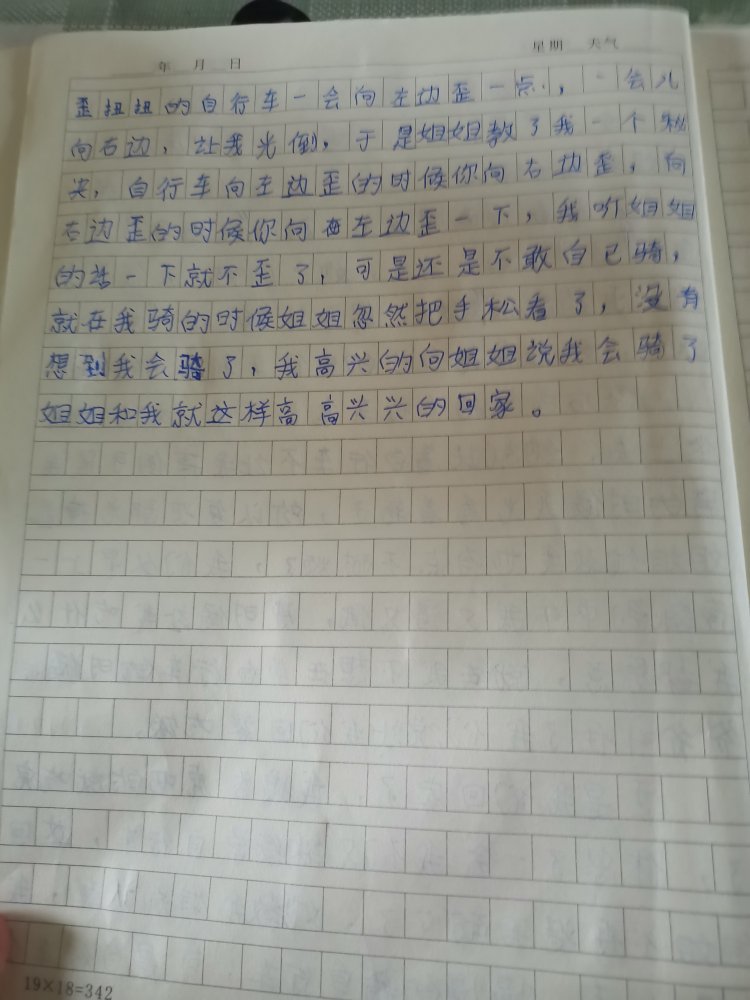 年 月 日 星期 天气
歪扭扭的自行车一会向左边歪一点,一会儿
向右边,让我光倒,于是姐姐教了我一个秘
决,自行车向左边歪的时候你向右边歪,向
右边歪的时候你向左边歪一下,我听姐姐
的话一下就不歪了,可是还是不敢自己骑,
就在我骑的时候姐姐忽然把手松看了,没有
想到我会骑了,我高兴的向姐姐说我会骑了
姐姐和我就这样高高兴兴的回家。
19×18=342